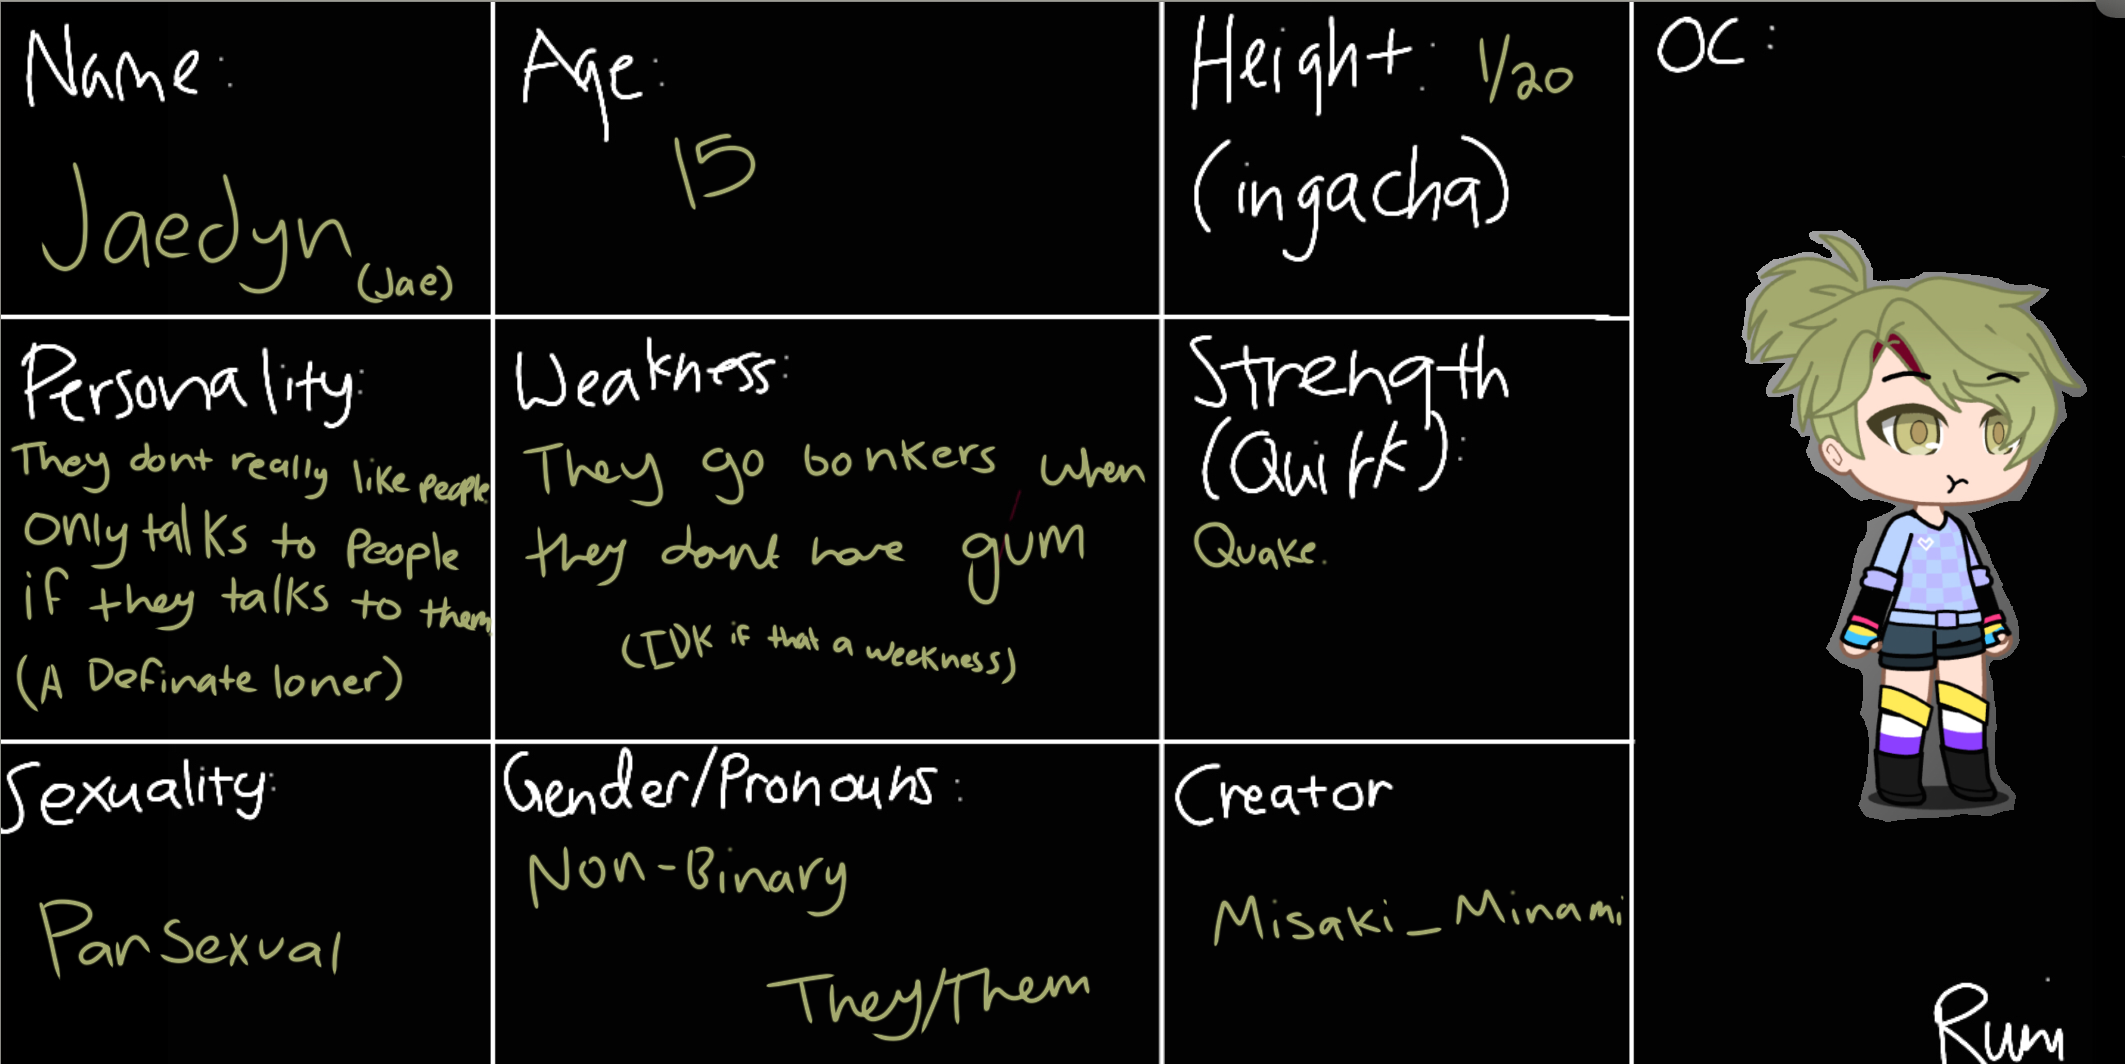 Name:
Jaedyn
(Jae)
Age:
15
Height: 1/20
(ingacha)
OC:
Personality:
They dont really like people
only talks to people
if they talks to them
(A Definate loner)
Weakness:
They go bonkers when
they dont have gum
(IDK if that a weekness)
Strength
(Quirk):
Quake.
Sexuality:
PanSexual
Gender/Pronouns:
Non-Binary
They/Them
Creator
Misaki_Minami
Rumi